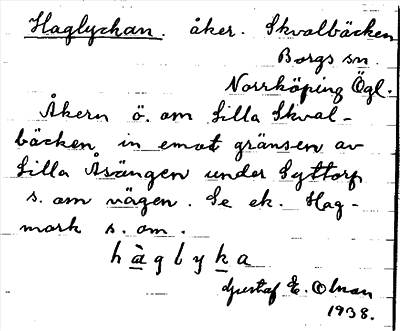 Haglyckan. åker. Skvalbäcken
Borgs sn.
Norrköping Ögl.
Åkern ö. om Lilla Skval-
bäcken in emot gränsen av
Lilla Åsängen under Lyttorp
s. om vägen. Se ek. Hag-
mark s. om.
hàglyka
Gustaf E. Olson
1938.